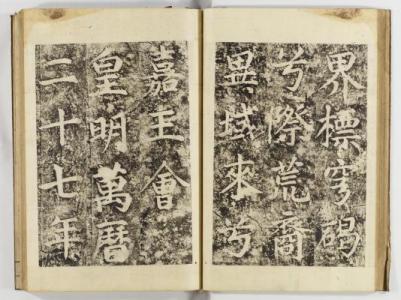 界標穹碣
兮際荒裔
異域來兮
嘉王會
皇明萬曆
二十七年